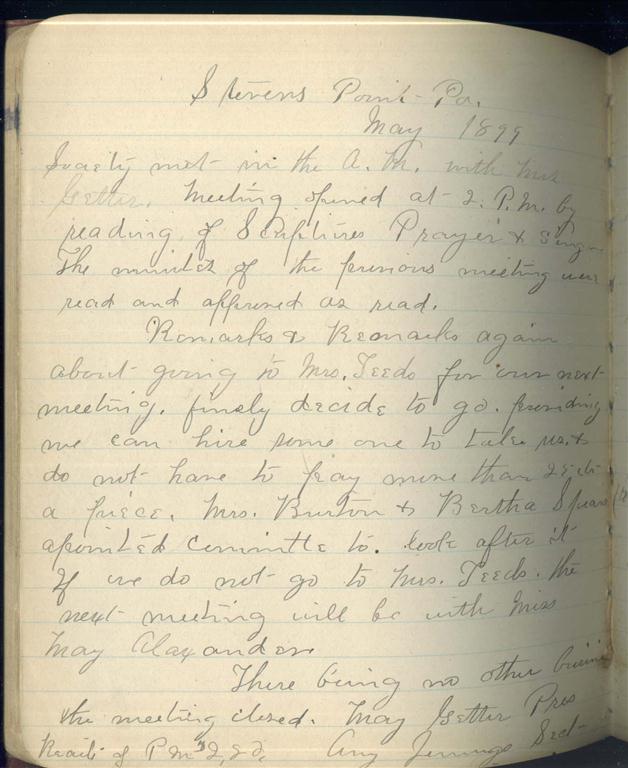 Stevens Point Pa.
May 1899
Society met in the A. M. with Mrs
Getter. Meeting opened at 2. P.M. by
reading of Scriptures Prayer &
The minutes of the previous meeting were
read and approved as read.
Remarks & Remarks again
about going to Mrs. Teeds for our next
meeting. finely decide to go. providing
we can hire some one to take us. &
do not have to pay more than 25 cts
a piece. Mrs. Burton & Bertha Spears
apointed committe to. look after it
If we do not go to Mrs. Teeds. the
next meeting will be with Miss
May Alaxander.
There being no other
the meeting closed. May Getter Pres
of P M Amy Jennings Sect